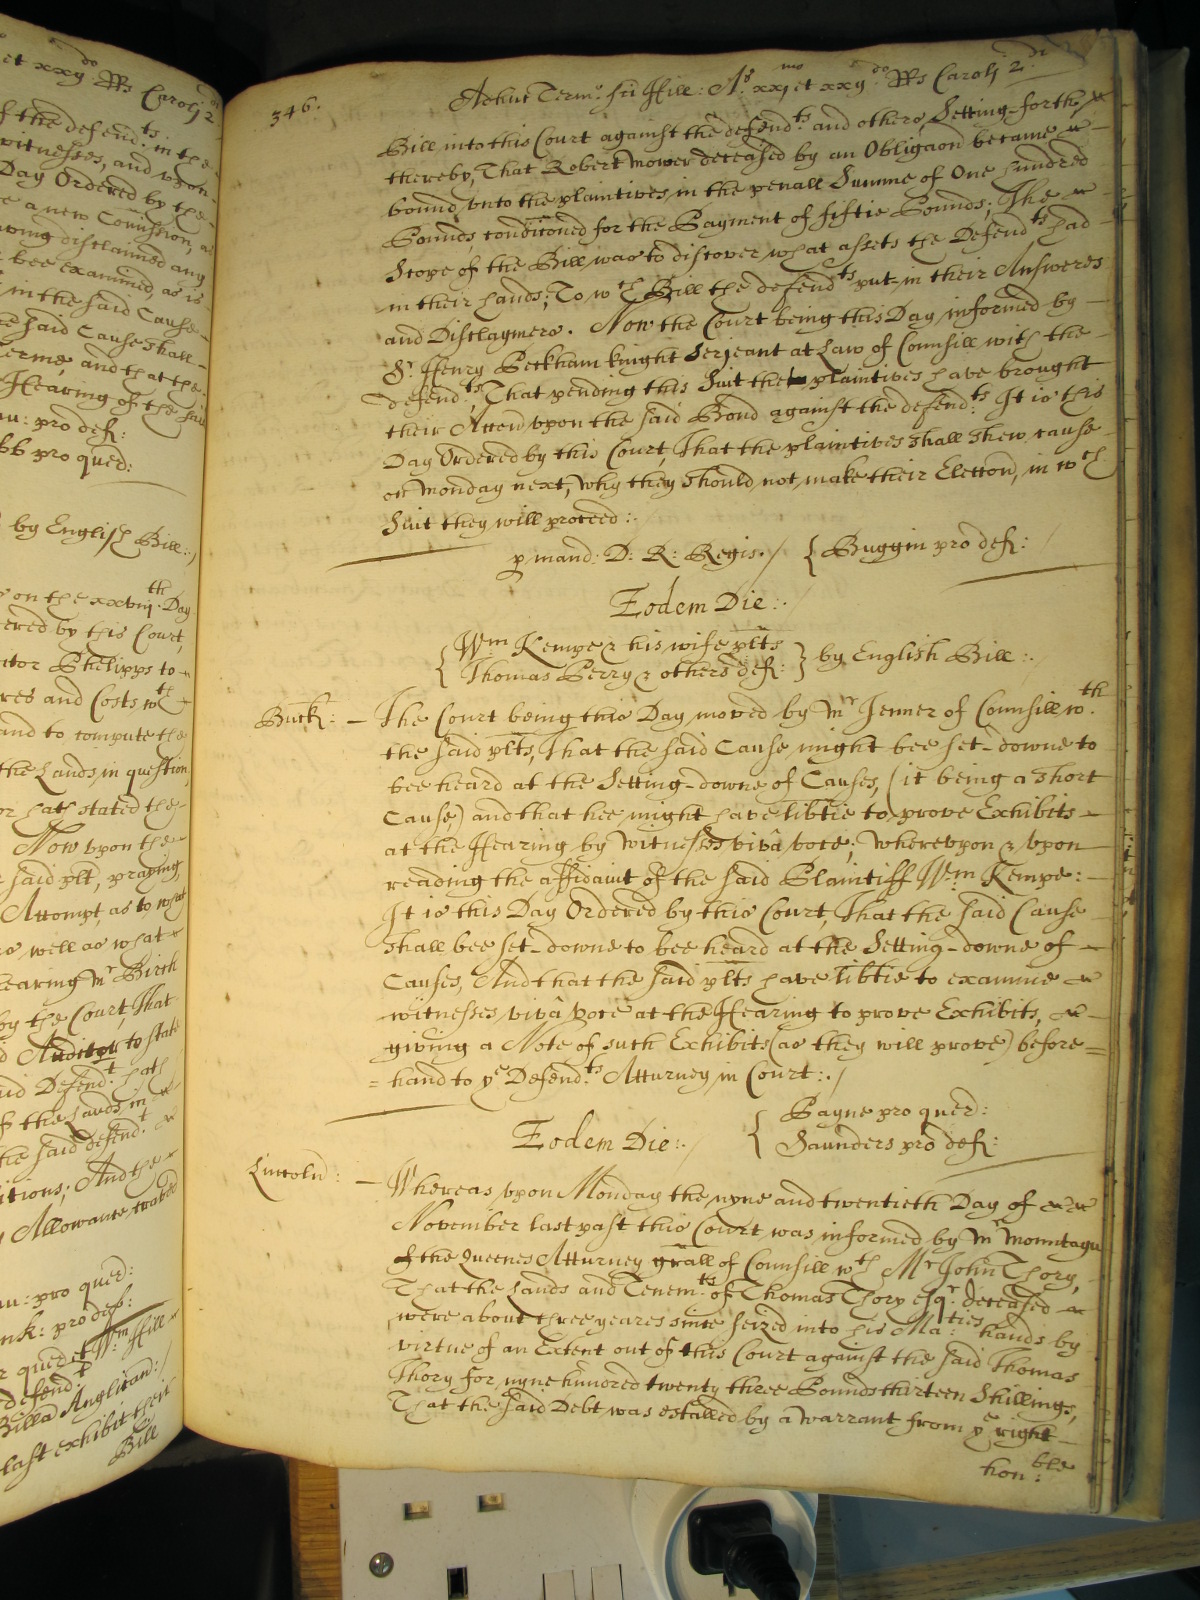 et xxij do RRs Caroli 2 di
f the defend ts. in the
witnesses, and upon
Day Ordered by the
e a new Comission, a
aving disclaimed any
bee examined, as is
in the said Cause
he said Cause shall
Terme, and that the
Hearing of the said
au: pro def:
bb pro quer:
by English Bill:
on the xxviij th. Day
ered by this Court,
itor Phelipps to
res and Costs w th
and to compute the
the Lands, in question,
or hath stated the
Now upon the
said plt, praying
Attempt, as to what
as well as what
earing M r Birch
by the Court, That
d Auditor to state
aid Defend t. hath
f the Lands in
the said defend t.
itions; And the
Allowance,
au: pro quer:
nk: pro def:
r quer et Wm Hill
defend t
Billa Anglican:
last exhibit their
Bill
346.
Adhuc Term o. sci Hill: A o. xxj mo et xxij do RRs Caroli 2 di.
Bill into this Court against the defend ts. and others, Setting-forth
thereby, That Robert Mower deceased by an Obligacon became
bound unto the plaintives in the penall Summe of One hundred
Pounds condiconed for the Payment of fiftie Pounds; The
Scope of the Bill was to discover what assets the Defend ts had
in their hands; To w ch Bill the defend ts put-in their Answeres
and Disclaymers. Now the Court being this Day informed by
S r. Henry Peckham knight Serjeant at Law of Counsill with the
defend ts, That pending this Suit the plaintives have brought
their Accon upon the said Bond against the defend ts. It is this
Day Ordered by this Court, That the plaintives shall shew cause
on Monday next, Why they should not make their Eleccon, in w ch
Suit they will proceed:
p mand: D: R: Regis. { Buggin pro def:
Eodem Die:
{ Wm Kempe & his wife plts
Thomas Perry & others def: } by English Bill:
Buck: - The Court being this Day moved by M r Jenner of Counsill w th.
the said plts, That the said Cause might bee set-downe to
bee heard at the Setting-downe of Causes, (it being a short
Cause,) and that hee might have libtie to prove Exhibits
at the Hearing by Witnesses vivâ voce; Whereupon & upon
reading the affidavit of the said Plaintiff Wm Kempe:
It is this Day Ordered by this Court, That the said Cause
shall bee set-downe to bee heard at the Setting-downe of
Causes, And that the said plts have libtie to examine
witnesses vivâ voce at the Hearing to prove Exhibits,
giving a Note of such Exhibits (as they will prove) before=
=hand to y e Defend ts. Atturney in Court:.
Eodem Die:. { Payne pro quer:
Saunders pro def:
Lincoln: - Whereas upon Monday the nyne and twentieth Day of
November last past this Court was informed by M r Mountagu
the Queenes Atturney grall of Counsill w th M r John Thory,
That the Lands and Tenem ts. of Thomas Thory esq r. deceased
were about three yeares since seized into his Ma ties: hands by
virtue of an Extent out of this Court against the said Thomas
Thory for nyne hundred twenty three Pounds thirteen Shillings,
That the said Debt was estalled by a Warrant from y e right
hon ble: